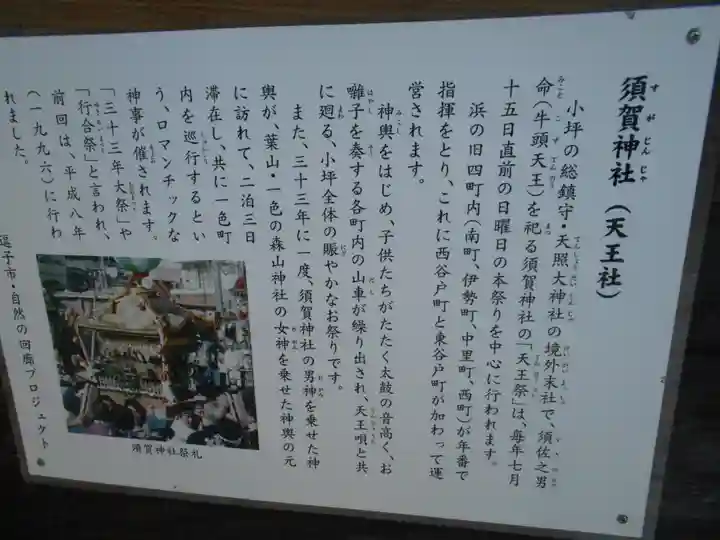 須賀神社（天王社）
すがじんじゃ
小坪の総鎮守・天照大神社の境外末社で、須佐之男
命（牛頭天王）を祀る須賀神社の「天王祭」は、毎年七月
十五日直前の日曜日の本祭りを中心に行われます。
浜の旧四町内（南町、伊勢町、中里町、西町）が年番で
指揮をとり、これに西谷戸町と東谷戸町が加わって運
営されます。
神輿をはじめ、子供たちがたたく太鼓の音高く、お
囃子を奏する各町内の山車が繰り出され、天王唄と共
に廻る、小坪全体の賑やかなお祭りです。
また、三十三年に一度、須賀神社の男神を乗せた神
輿が、葉山・一色の森山神社の女神を乗せた神輿の元
に訪れて、二泊三日
滞在し、共に一色町
内を巡行するとい
う、ロマンチックな
神事が催されます。
「三十三年大祭」や
「行合祭」と言われ、
前回は、平成八年
（一九九六）に行わ
れました。
須賀神社祭礼
逗子市・自然の回廊プロジェクト